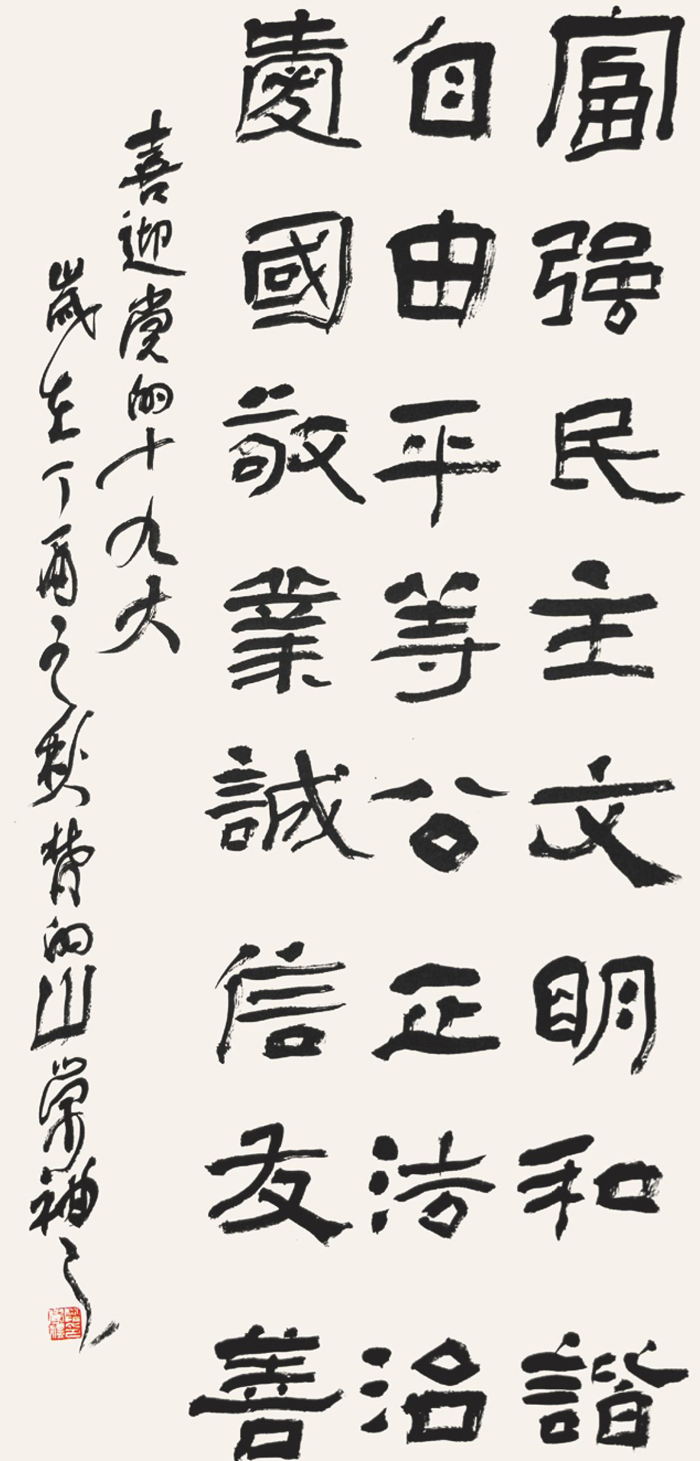 富强民主文明和諧
自由平等公正法治
愛國敬業誠信友善
喜迎党的十九大
歲在丁酉之秋